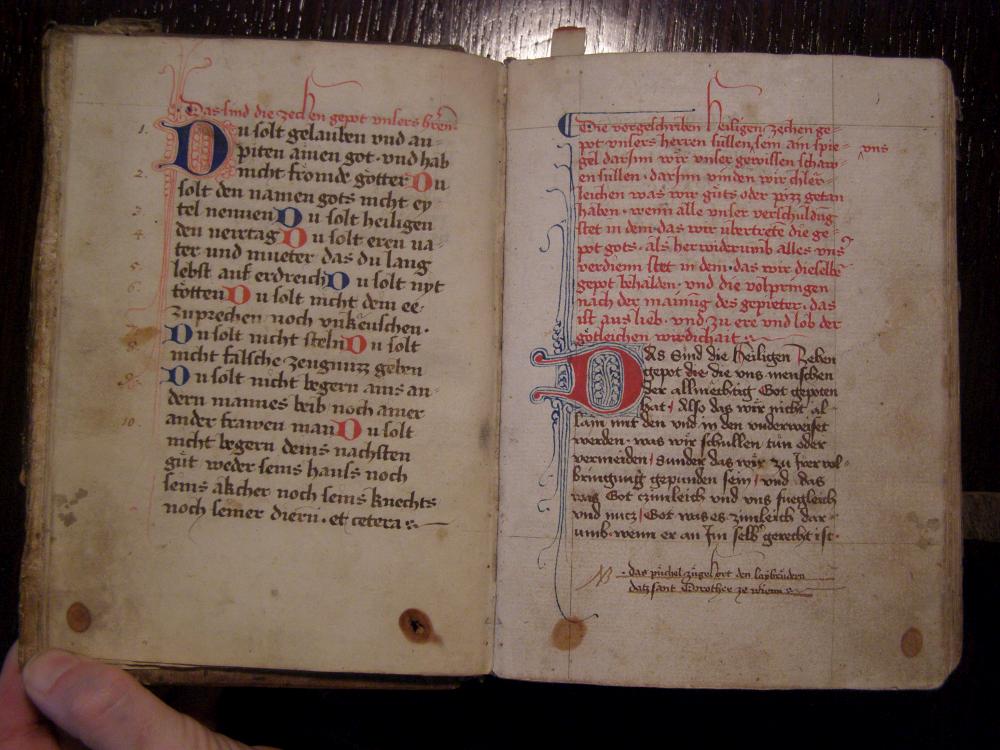 Das sind die zechen gepot vnsers hrenn
1.
Du solt gelauben vnd an-
piten ainen got · vnd hab
nicht fromde götter Du
2.
solt den namen gots nicht ey
tel nennen Du solt heiligen
3.
den veirtag Du solt eren va-
4.
ter und mueter das du lang
lebst auf erdreich Du solt nyt
5.
tötten Du solt nicht dein ee-
6.
zuprechen noch vnkeuschen ·
7.
Du solt nicht steln Du solt
8.
nicht falsche zeugnuzz geben
9.
Du solt nicht begern ains an-
dern mannes beib noch ainer
10.
ander frawen man Du solt
nicht begern deins nachsten
güt weder seins hauss noch
seins akcher noch seins knechts
noch seiner diern · et cetera
Die vorgeschriben heiligen zechen ge-
pot vnsers herren süllen sein ain spie- vns
gel darinn wir vnser gewissen schaw-
en süllen · darinn vinden wir chler-
leichen was wir güts oder pözz getan
haben · wenn alle vnser verschuldung
stet in dem · das wir übertrete die ge-
pot gots · als herwiderumb alles vns
verdienn stet in dem · das wir dieselbe
gepot behalden · und die volpringen
nach der mainüg des gepieter · das
ist aus lieb · vnd zu ere vnd lob der
götleichen wirdichait
DAs Sind die Heiligen Zehen
gepot die · die vns menschen
der allmechtig Got gepoten
hat / Also das wir nicht al-
lain mit den vnd in den vnderweiset
werden · was wir schullen tün oder
vermeiden / sunder das wir zu Irer vol-
bringung gepunden sein / vnd das
was Got czimleich vnd vns fuegleich
vnd nucz / Got was es zimleich dar-
umb · wenn er an Im selb gerecht ist ·
das püchel zugehort den laybrüdern
datz sant Dorothee ze wienn